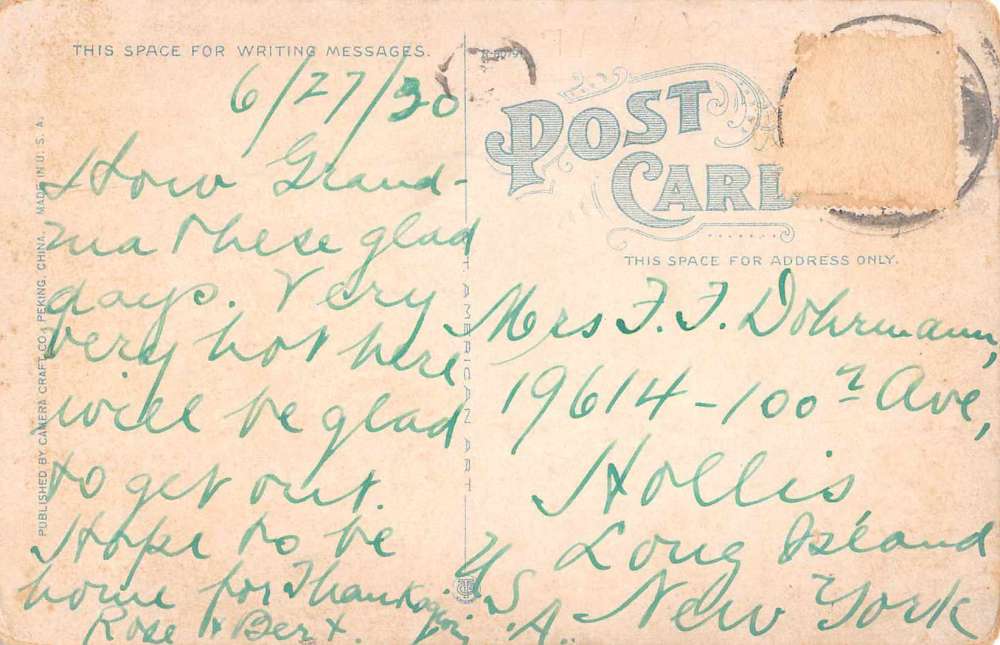 THIS SPACE FOR WRITING MESSAGES.
6/27/30
How Grand-
ma these glad
days. Very
very hot here
will be glad
to get out.
Hope to be
home for Thanksgiving
Rose & Bert.
PUBLISHED BY CAMERA CRAFT CO., PEKING, CHINA. MADE IN U.S.A.
AMERICAN ART
POST
CARD
THIS SPACE FOR ADDRESS ONLY.
Mrs F. F. Dohrmann,
19614-100th Ave,
Hollis,
Long Island
New York
U.S.A.